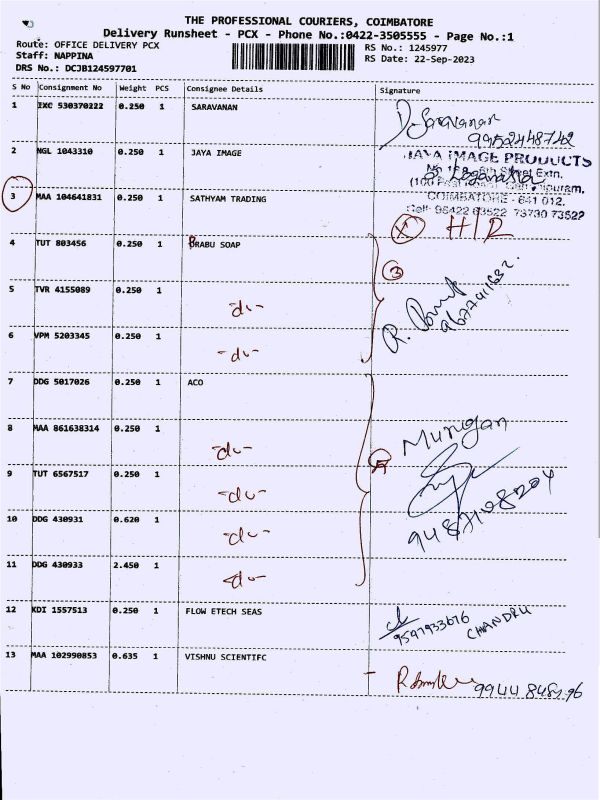 THE PROFESSIONAL COURIERS, COIMBATORE
Delivery Runsheet - PCX - Phone No.:0422-3505555 - Page No.:1
Route: OFFICE DELIVERY PCX
RS No.: 1245977
Staff: NAPPINA
RS Date: 22-Sep-2023
DRS No.: DCJB124597701
S No Consignment No Weight PCS Consignee Details Signature
1 IXC 530370222 0.250 1 SARAVANAN
Saravanan
9952448742
2 NGL 1043310 0.250 1 JAYA IMAGE
JAYA IMAGE PRODUCTS
Street Extn.
COIMBATORE - 641 012.
Cell- 98422 63522 73730 73522
3 MAA 104641831 0.250 1 SATHYAM TRADING
X
4 TUT 803456 0.250 1 PRABU SOAP
3
5 TVR 4155089 0.250 1 -do-
6 VPM 5203345 0.250 1 -do-
7 DDG 5017026 0.250 1 ACO
Murugan
8 MAA 861638314 0.250 1 -do-
5
9 TUT 6567517 0.250 1 -do-
9487108204
10 DDG 430931 0.620 1 -do-
11 DDG 430933 2.450 1 -do-
12 KDI 1557513 0.250 1 FLOW ETECH SEAS
9597933676 CHANDRU
13 MAA 102990853 0.635 1 VISHNU SCIENTIFC